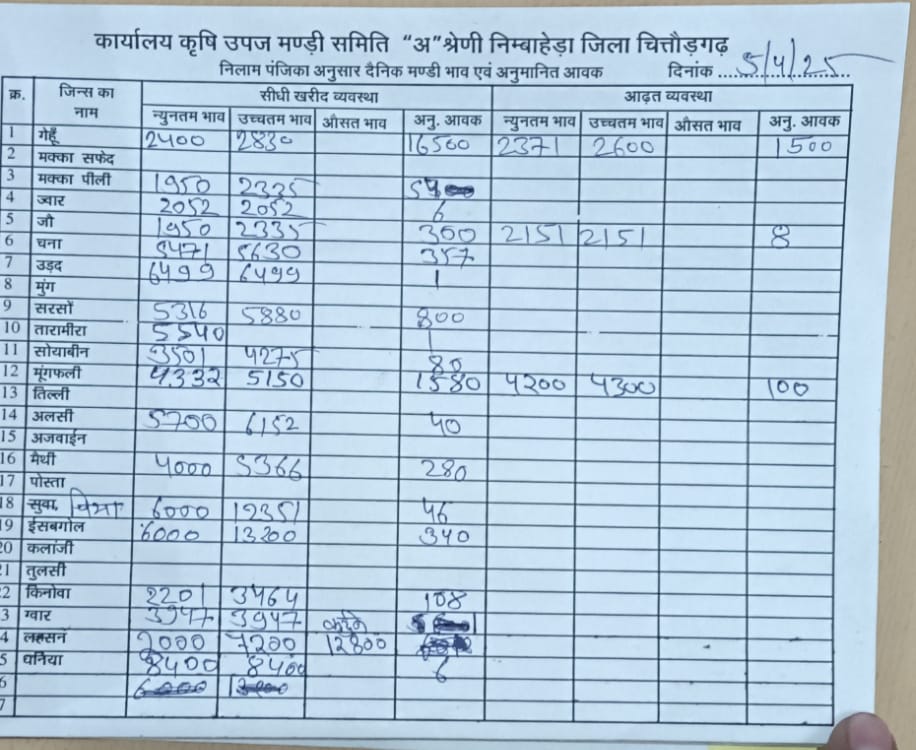 कार्यालय कृषि उपज मण्ड़ी समिति “अ”श्रेणी निम्बाहेड़ा जिला चित्तौड़गढ़
निलाम पंजिका अनुसार दैनिक मण्डी भाव एवं अनुमानित आवक दिनांक 5/4/25
क्र. जिन्स का नाम सीधी खरीद व्यवस्था आढ़त व्यवस्था
न्युनतम भाव उच्चतम भाव औसत भाव अनु. आवक न्युनतम भाव उच्चतम भाव औसत भाव अनु. आवक
1 गेहूँ 2400 2830 16500 2371 2600 1500
2 मक्का सफेद
3 मक्का पीली 1950 2335
4 ज्वार 2052 2052 6
5 जौ 1950 2335 300 2151 2151 8
6 चना 5471 5630 357
7 उड़द 6499 6499 1
8 मुंग
9 सरसों 5316 5880 800
10 तारामीरा 5540 1
11 सोयाबीन 3501 4275 80
12 मूंगफली 4332 5150 1580 4200 4300 100
13 तिल्ली
14 अलसी 5700 6152 40
15 अजवाईन
16 मैथी 4000 5366 280
17 पोस्ता
18 सुवा, चिया 6000 12351 46
19 ईसबगोल 6000 13200 340
20 कलांजी
21 तुलसी
22 किनोवा 2201 3464 108
3 ग्वार 3947 3947
4 लहसन 2000 7200 12800
5 धनिया 8400 8400 6
6
7